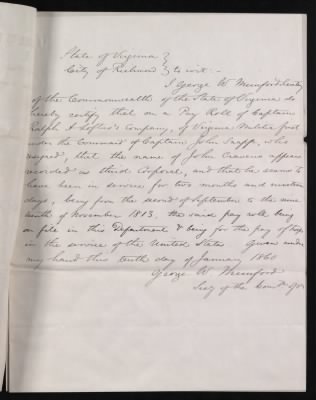 State of Virginia }
City of Richmond } to wit: -
I George W Munford Secretary
of the Commonwealth of the State of Virginia do
hereby certify that on a Pay Roll of Captain
Ralph Company, of Virginia Militia first
under the Command of Captain John who
resigned, that the name of John Cravens appears
recorded as third Corporal, and that he seems to
have been in service for two months and nineteen
days, being from the second of September to the nine
teenth of November 1813, the said pay roll being
on file in this Department & being for the pay of troops
in the service of the United States. Given under
my hand this tenth day of January 1860
George W. Munford
Secy of the Comth Va